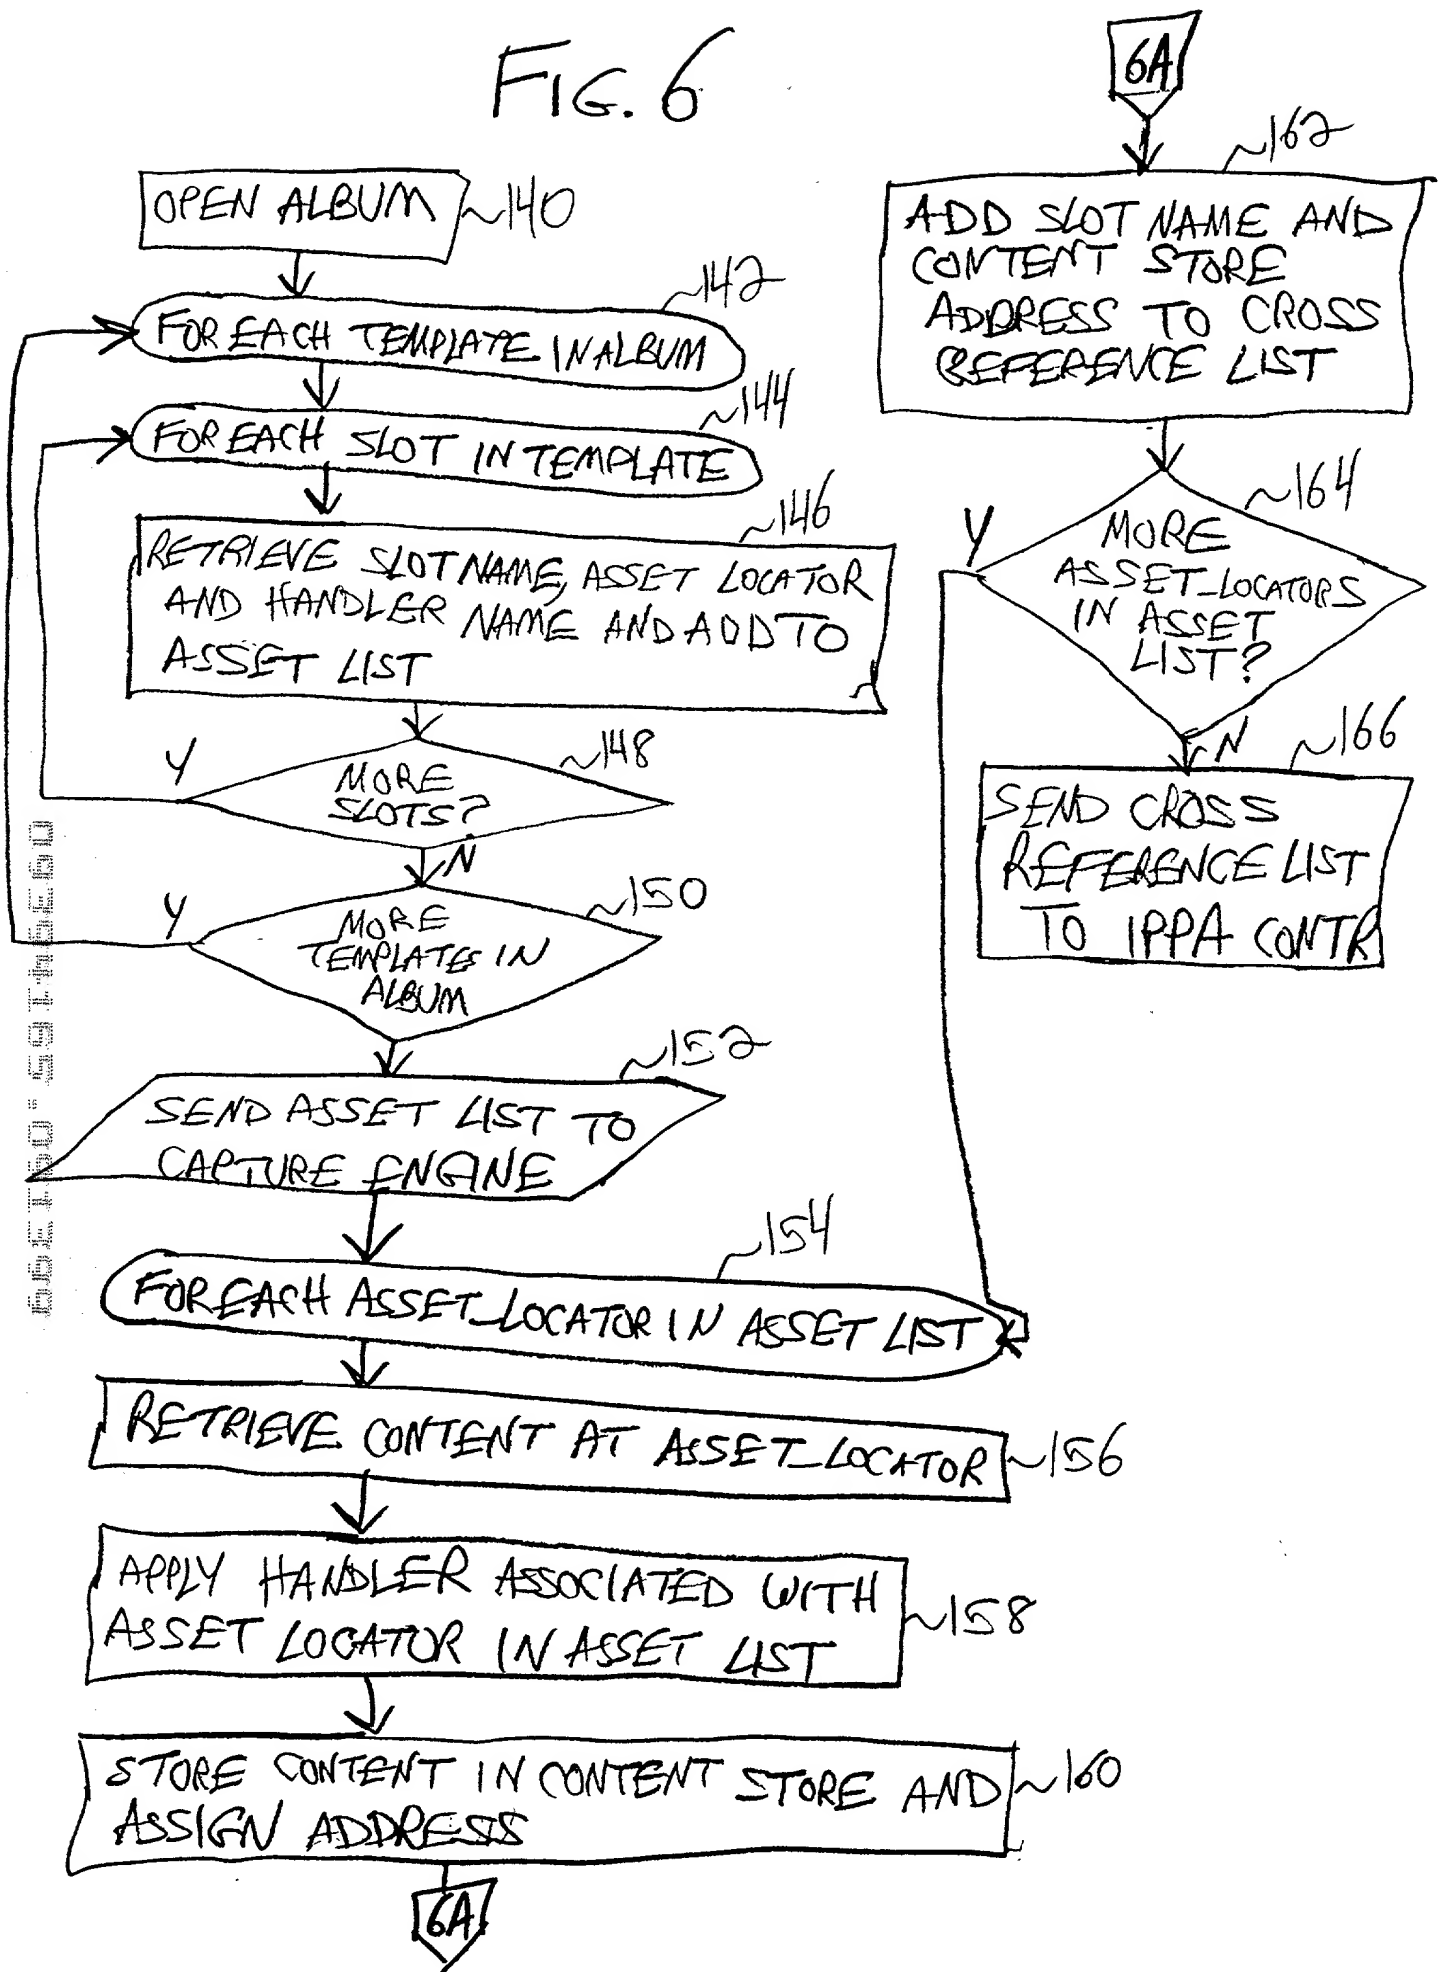 FIG. 6
OPEN ALBUM
140
142
FOR EACH TEMPLATE IN ALBUM
144
FOR EACH SLOT IN TEMPLATE
146
RETRIEVE SLOT NAME, ASSET LOCATOR
AND HANDLER NAME AND ADD TO
ASSET LIST
148
Y
MORE
SLOTS?
N
150
Y
MORE
TEMPLATES IN
ALBUM
152
SEND ASSET LIST TO
CAPTURE ENGINE
154
FOR EACH ASSET_LOCATOR IN ASSET LIST
RETRIEVE CONTENT AT ASSET_LOCATOR
156
APPLY HANDLER ASSOCIATED WITH
ASSET LOCATOR IN ASSET LIST
158
STORE CONTENT IN CONTENT STORE AND
ASSIGN ADDRESS
160
6A
6A
162
ADD SLOT NAME AND
CONTENT STORE
ADDRESS TO CROSS
REFERENCE LIST
164
Y
MORE
ASSET_LOCATORS
IN ASSET
LIST?
N
166
SEND CROSS
REFERENCE LIST
TO IPPA CONTR